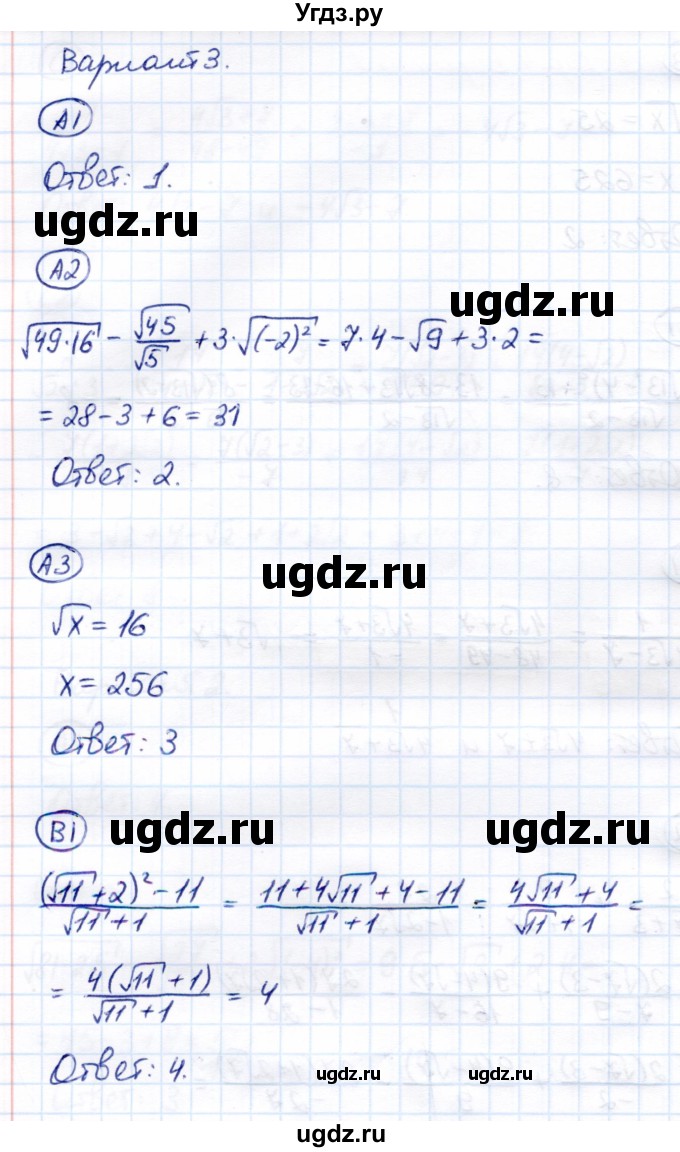 Угдз.ру
Вариант 3.
А1
Ответ: 1.
ugdz.ru
А2
ugdz.ru
√(49·16) − √45/√5 + 3·√((−2)²) = 7·4 − √9 + 3·2 =
= 28 − 3 + 6 = 31
Ответ: 2.
А3
ugdz.ru
√x = 16
x = 256
Ответ: 3
В1
ugdz.ru
ugdz.ru
((√11+2)² − 11)/(√11+1) = (11+4√11+4−11)/(√11+1) = (4√11+4)/(√11+1) =
= 4(√11+1)/(√11+1) = 4
Ответ: 4.
ugdz.ru
ugdz.ru
ugdz.ru